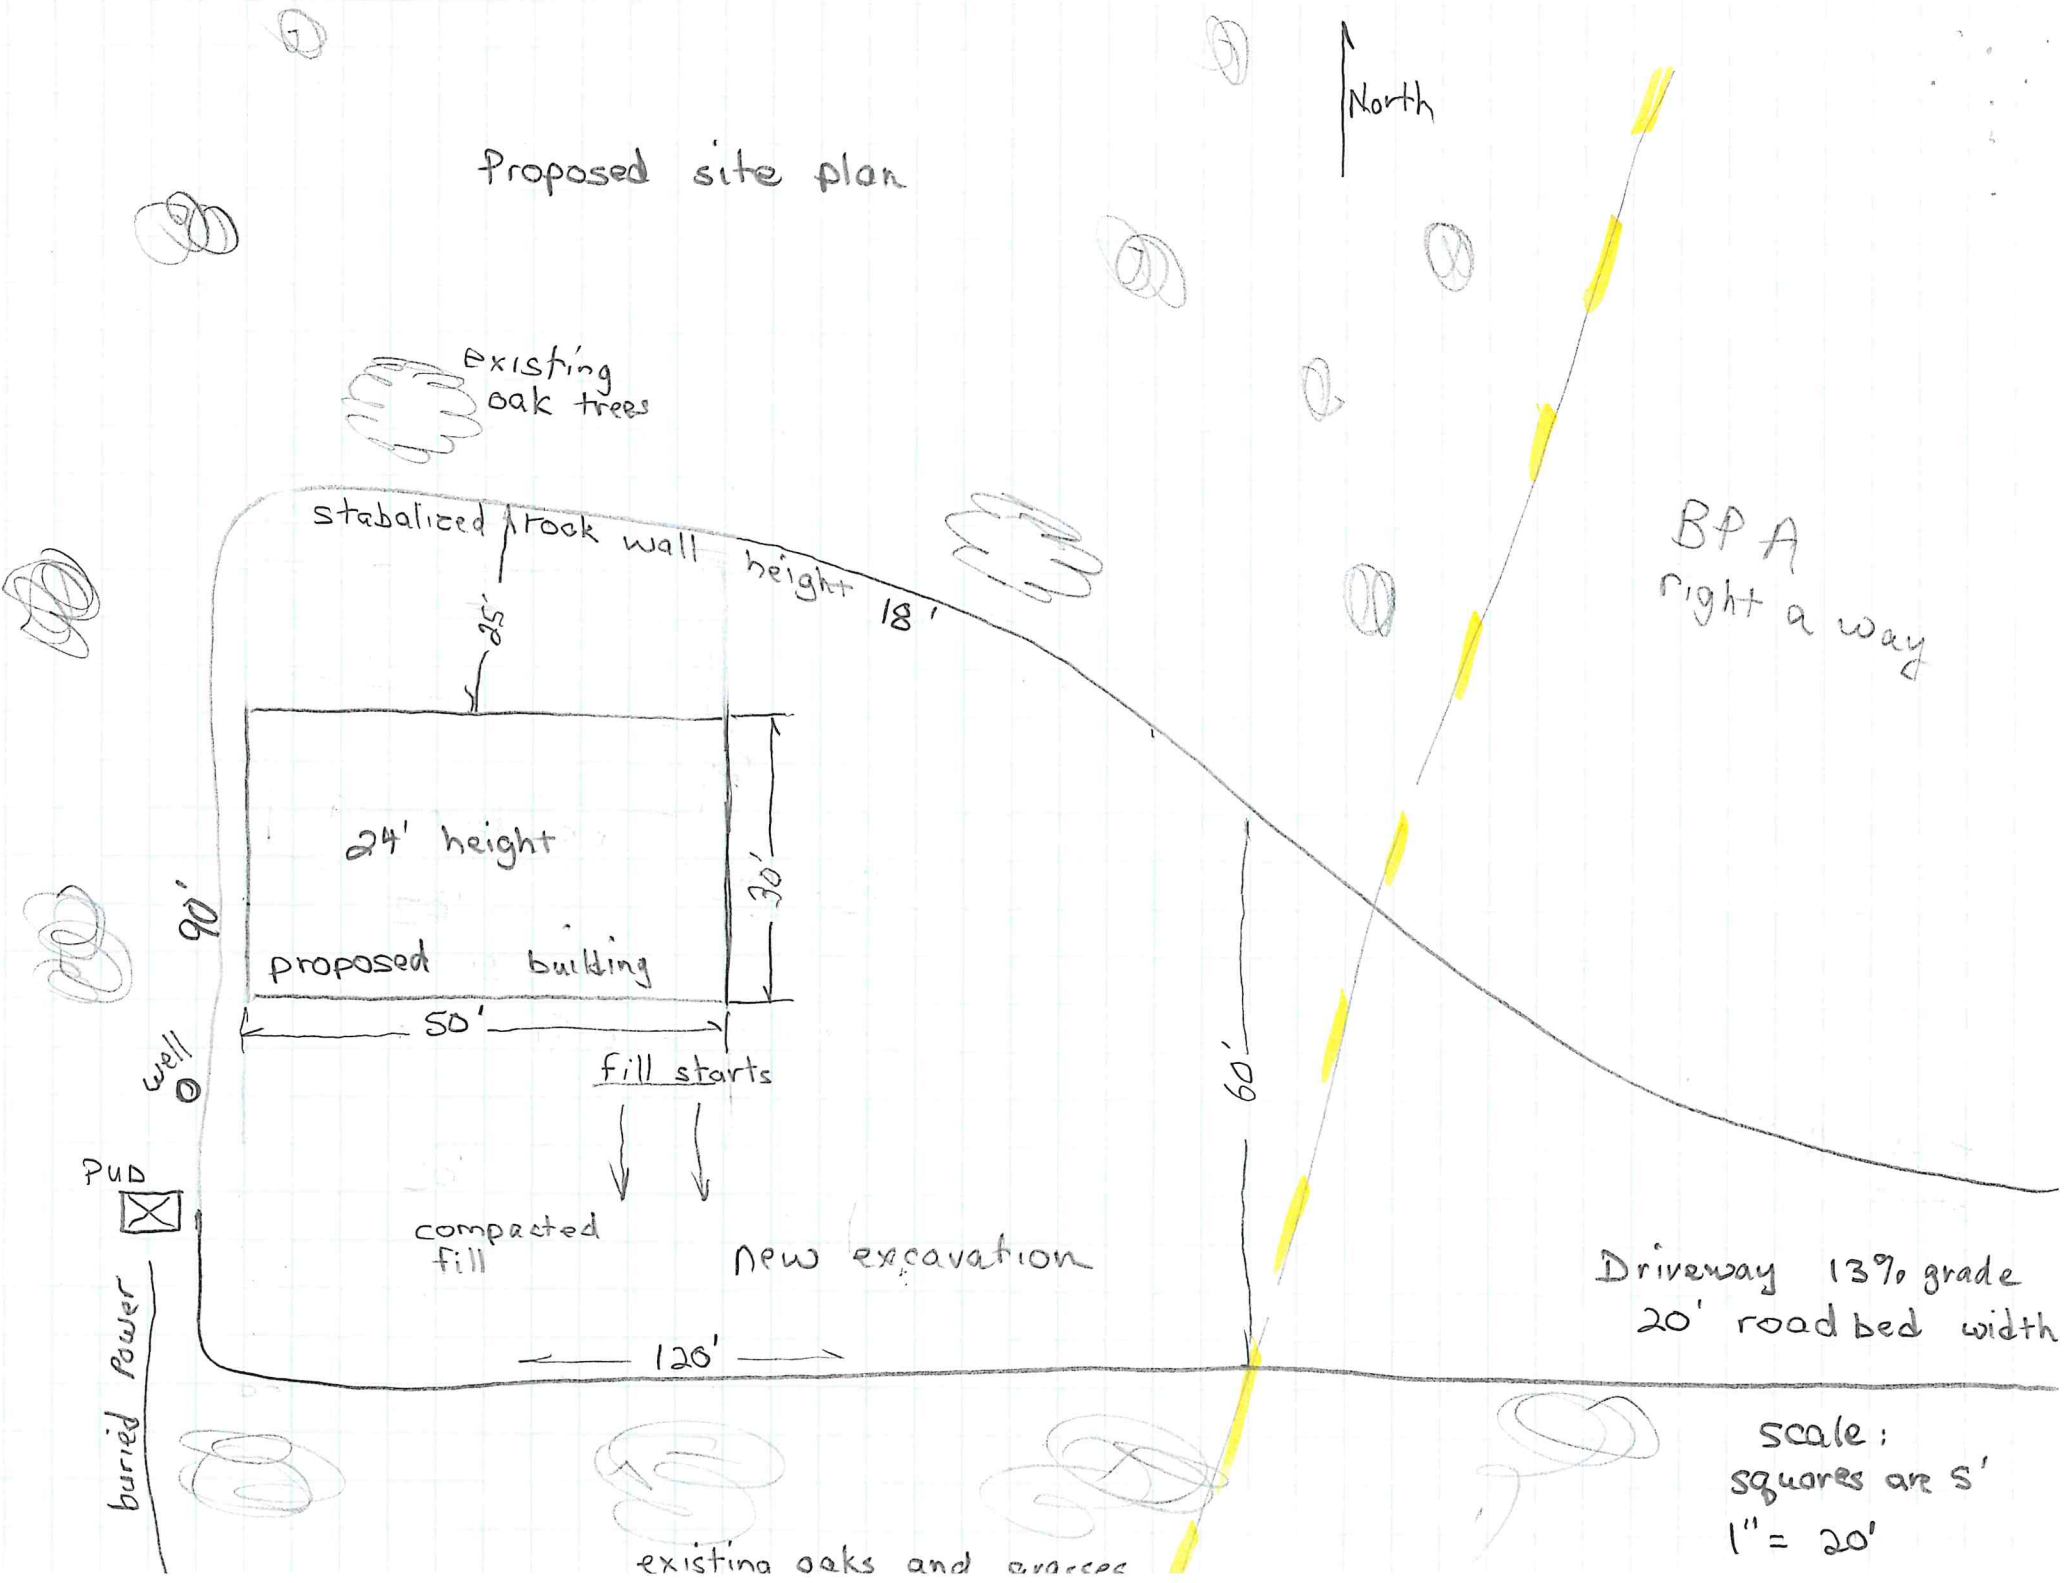 North
Proposed site plan
existing
oak trees
stabalized rock wall height 18'
BPA
right a way
25'
24' height
30'
90'
proposed building
50'
well
fill starts
60'
PUD
compacted
fill
new excavation
Driveway 13% grade
20' road bed width
buried Power
120'
scale:
squares are 5'
1" = 20'
existing oaks and